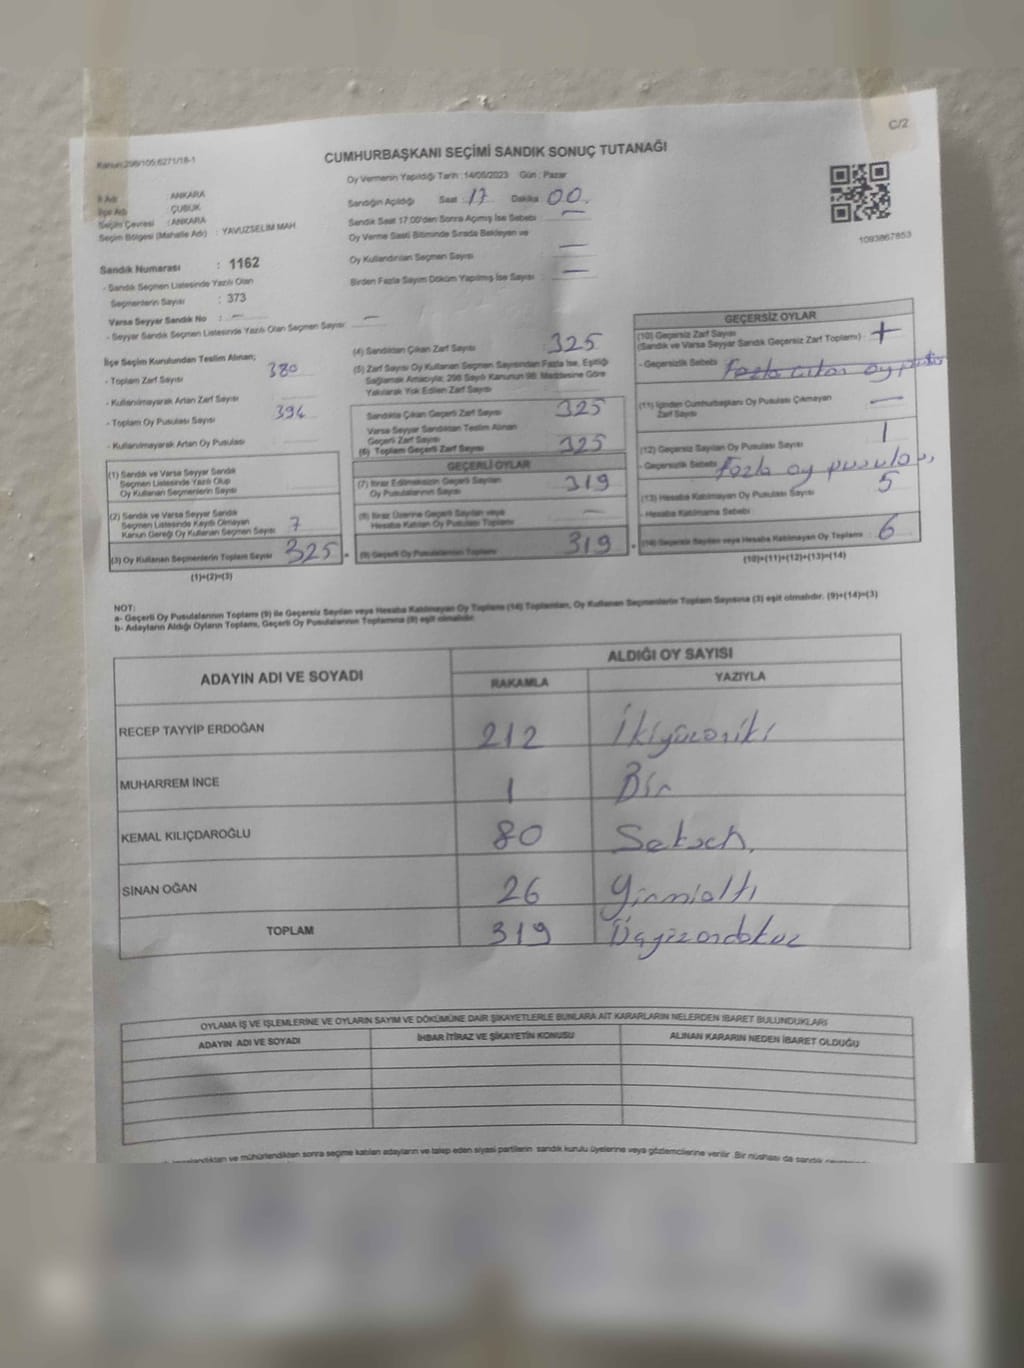 C/2
Kanun:298/105;6271/18-1
CUMHURBAŞKANI SEÇİMİ SANDIK SONUÇ TUTANAĞI
Oy Vermenin Yapıldığı Tarih :14/05/2023 Gün : Pazar
İl Adı : ANKARA
İlçe Adı : ÇUBUK
Seçim Çevresi : ANKARA
Seçim Bölgesi (Mahalle Adı) : YAVUZSELİM MAH
Sandığın Açıldığı Saat : 17 Dakika 00
Sandık Saat 17:00'den Sonra Açımış İse Sebebi : —
Oy Verme Saati Bitiminde Sırada Bekleyen ve
Oy Kullandırılan Seçmen Sayısı —
Birden Fazla Sayım Döküm Yapılmış İse Sayısı : —
1093867853
Sandık Numarası : 1162
- Sandık Seçmen Listesinde Yazılı Olan
Seçmenlerin Sayısı : 373
Varsa Seyyar Sandık No : —
- Seyyar Sandık Seçmen Listesinde Yazılı Olan Seçmen Sayısı: —
İlçe Seçim Kurulundan Teslim Alınan;
- Toplam Zarf Sayısı 380
- Kullanılmayarak Artan Zarf Sayısı
- Toplam Oy Pusulası Sayısı 394
- Kullanılmayarak Artan Oy Pusulası
(1) Sandık ve Varsa Seyyar Sandık
Seçmen Listesinde Yazılı Olup
Oy Kullanan Seçmenlerin Sayısı
(2) Sandık ve Varsa Seyyar Sandık
Seçmen Listesinde Kayıtlı Olmayan
Kanun Gereği Oy Kullanan Seçmen Sayısı 7
(3) Oy Kullanan Seçmenlerin Toplam Sayısı 325
(1)+(2)=(3)
(4) Sandıktan Çıkan Zarf Sayısı : 325
(5) Zarf Sayısı Oy Kullanan Seçmen Sayısından Fazla İse, Eşitliği
Sağlamak Amacıyla; 298 Sayılı Kanunun 98. Maddesine Göre
Yakılarak Yok Edilen Zarf Sayısı
Sandıkta Çıkan Geçerli Zarf Sayısı 325
Varsa Seyyar Sandıktan Teslim Alınan
Geçerli Zarf Sayısı
(6) Toplam Geçerli Zarf Sayısı 325
GEÇERLİ OYLAR
(7) İtiraz Edilmeksizin Geçerli Sayılan
Oy Pusulalarının Sayısı 319
(8) İtiraz Üzerine Geçerli Sayılan veya
Hesaba Katılan Oy Pusulası Toplamı —
(9) Geçerli Oy Pusulalarının Toplamı 319
GEÇERSİZ OYLAR
(10) Geçersiz Zarf Sayısı
(Sandık ve Varsa Seyyar Sandık Geçersiz Zarf Toplamı) :
- Geçersizlik Sebebi : Fazla çıkan oy
(11) İçinden Cumhurbaşkanı Oy Pusulası Çıkmayan
Zarf Sayısı —
(12) Geçersiz Sayılan Oy Pusulası Sayısı 1
- Geçersizlik Sebebi : Fazla oy pusulası,
(13) Hesaba Katılmayan Oy Pusulası Sayısı 5
- Hesaba Katılmama Sebebi :
(14) Geçersiz Sayılan veya Hesaba Katılmayan Oy Toplamı : 6
(10)+(11)+(12)+(13)=(14)
NOT:
a- Geçerli Oy Pusulalarının Toplamı (9) ile Geçersiz Sayılan veya Hesaba Katılmayan Oy Toplamı (14) Toplamından, Oy Kullanan Seçmenlerin Toplam Sayısına (3) eşit olmalıdır. (9)+(14)=(3)
b- Adayların Aldığı Oyların Toplamı, Geçerli Oy Pusulalarının Toplamına (9) eşit olmalıdır.
ADAYIN ADI VE SOYADI
ALDIĞI OY SAYISI
RAKAMLA YAZIYLA
RECEP TAYYİP ERDOĞAN 212 İkiyüzoniki
MUHARREM İNCE 1 Bir
KEMAL KILIÇDAROĞLU 80 Seksen,
SİNAN OĞAN 26 Yirmialtı
TOPLAM 319 Üçyüzondokuz
OYLAMA İŞ VE İŞLEMLERİNE VE OYLARIN SAYIM VE DÖKÜMÜNE DAİR ŞİKAYETLERLE BUNLARA AİT KARARLARIN NELERDEN İBARET BULUNDUKLARI
ADAYIN ADI VE SOYADI İHBAR İTİRAZ VE ŞİKAYETİN KONUSU ALINAN KARARIN NEDEN İBARET OLDUĞU
ve mühürlendikten sonra seçime katılan adayların ve talep eden siyasi partilerin sandık kurulu üyelerine veya gözlemcilerine verilir. Bir nüshası da sandık